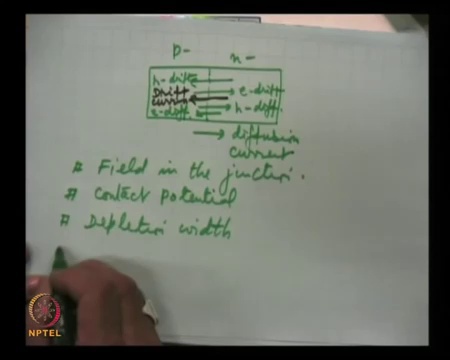 p- n-
h-drift
Drift e-drift
current h-diff.
e-diff.
diffusion
current
# Field in the junction.
# Contact Potential
# Depletion width
NPTEL